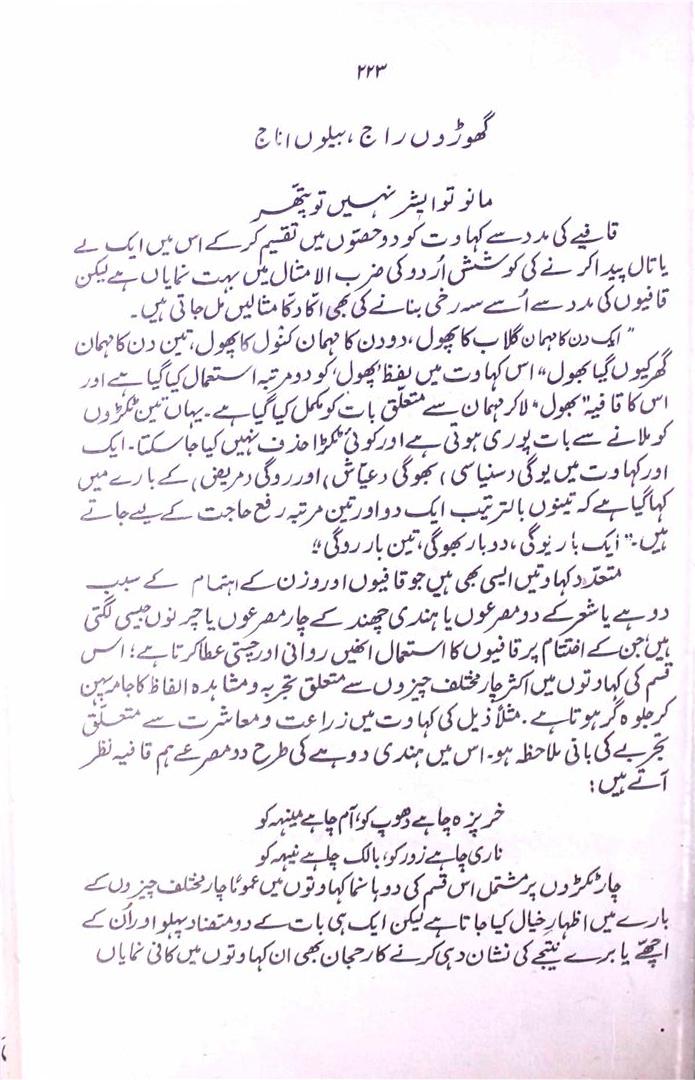 ۲۲۳
گھوڑوں راج، بیلوں اناج
مانو تو ایشر نہیں تو پتّھر
قافیے کی مدد سے کہاوت کو دو حصّتوں میں تقسیم کر کے اس میں ایک لے
یا تال پیدا کرنے کی کوشش اُردو کی ضرب الامثال میں بہت نمایاں ہے لیکن
قافیوں کی مدد سے اُسے سہ رخی بنانے کی بھی اکّا دکّا مثالیں مل جاتی ہیں۔
"ایک دن کا مہمان گلاب کا پھول، دو دن کا مہمان کنول کا پھول، تین دن کا مہمان
گھر کیوں گیا بھول" اس کہاوت میں لفظ 'پھول' کو دو مرتبہ استعمال کیا گیا ہے اور
اس کا قافیہ "بھول" لا کر مہمان سے متعلّق بات کو مکمل کیا گیا ہے۔ یہاں تین ٹکڑوں
کو ملانے سے بات پوری ہوتی ہے اور کوئی ٹکڑا حذف نہیں کیا جا سکتا۔ ایک
اور کہاوت میں یوگی (سنیاسی) بھوگی (عیّاش) اور روگی (مریض) کے بارے میں
کہا گیا ہے کہ تینوں بالترتیب ایک دو اور تین مرتبہ رفع حاجت کے لیے جاتے
ہیں۔ "ایک بار یوگی، دو بار بھوگی، تین بار روگی"
متعدّد کہاوتیں ایسی بھی ہیں جو قافیوں اور وزن کے اہتمام کے سبب
دوہے یا شعر کے دو مصرعوں یا ہندی چھند کے چار مصرعوں یا چرنوں جیسی لگتی
ہیں جن کے اختتام پر قافیوں کا استعمال انھیں روانی اور چستی عطا کرتا ہے؛ اس
قسم کی کہاوتوں میں اکثر چار مختلف چیزوں سے متعلق تجربہ و مشاہدہ الفاظ کا جامہ پہن
کر جلوہ گر ہوتا ہے۔ مثلاً ذیل کی کہاوت میں زراعت و معاشرت سے متعلّق
تجربے کی بانی ملاحظہ ہو۔ اس میں ہندی دوہے کی طرح دو مصرعے ہم قافیہ نظر
آتے ہیں:
خرپزہ چاہے دھوپ کو، آم چاہے مینہہ کو
ناری چاہے زور کو، بالک چاہے نیہہ کو
چار ٹکڑوں پر مشتمل اس قسم کی دوہا نما کہاوتوں میں عموماً چار مختلف چیزوں کے
بارے میں اظہارِ خیال کیا جاتا ہے لیکن ایک ہی بات کے دو متضاد پہلو اور اُن کے
اچھّے یا برے نتیجے کی نشان دہی کرنے کا رحجان بھی ان کہاوتوں میں کافی نمایاں